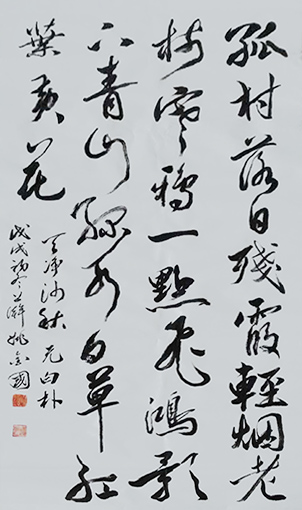 孤村落日殘霞輕烟老
樹寒鴉一點飛鴻影
下青山綠水白草紅
葉黃花
天净沙秋 元白朴
戊戌初冬 姚金國